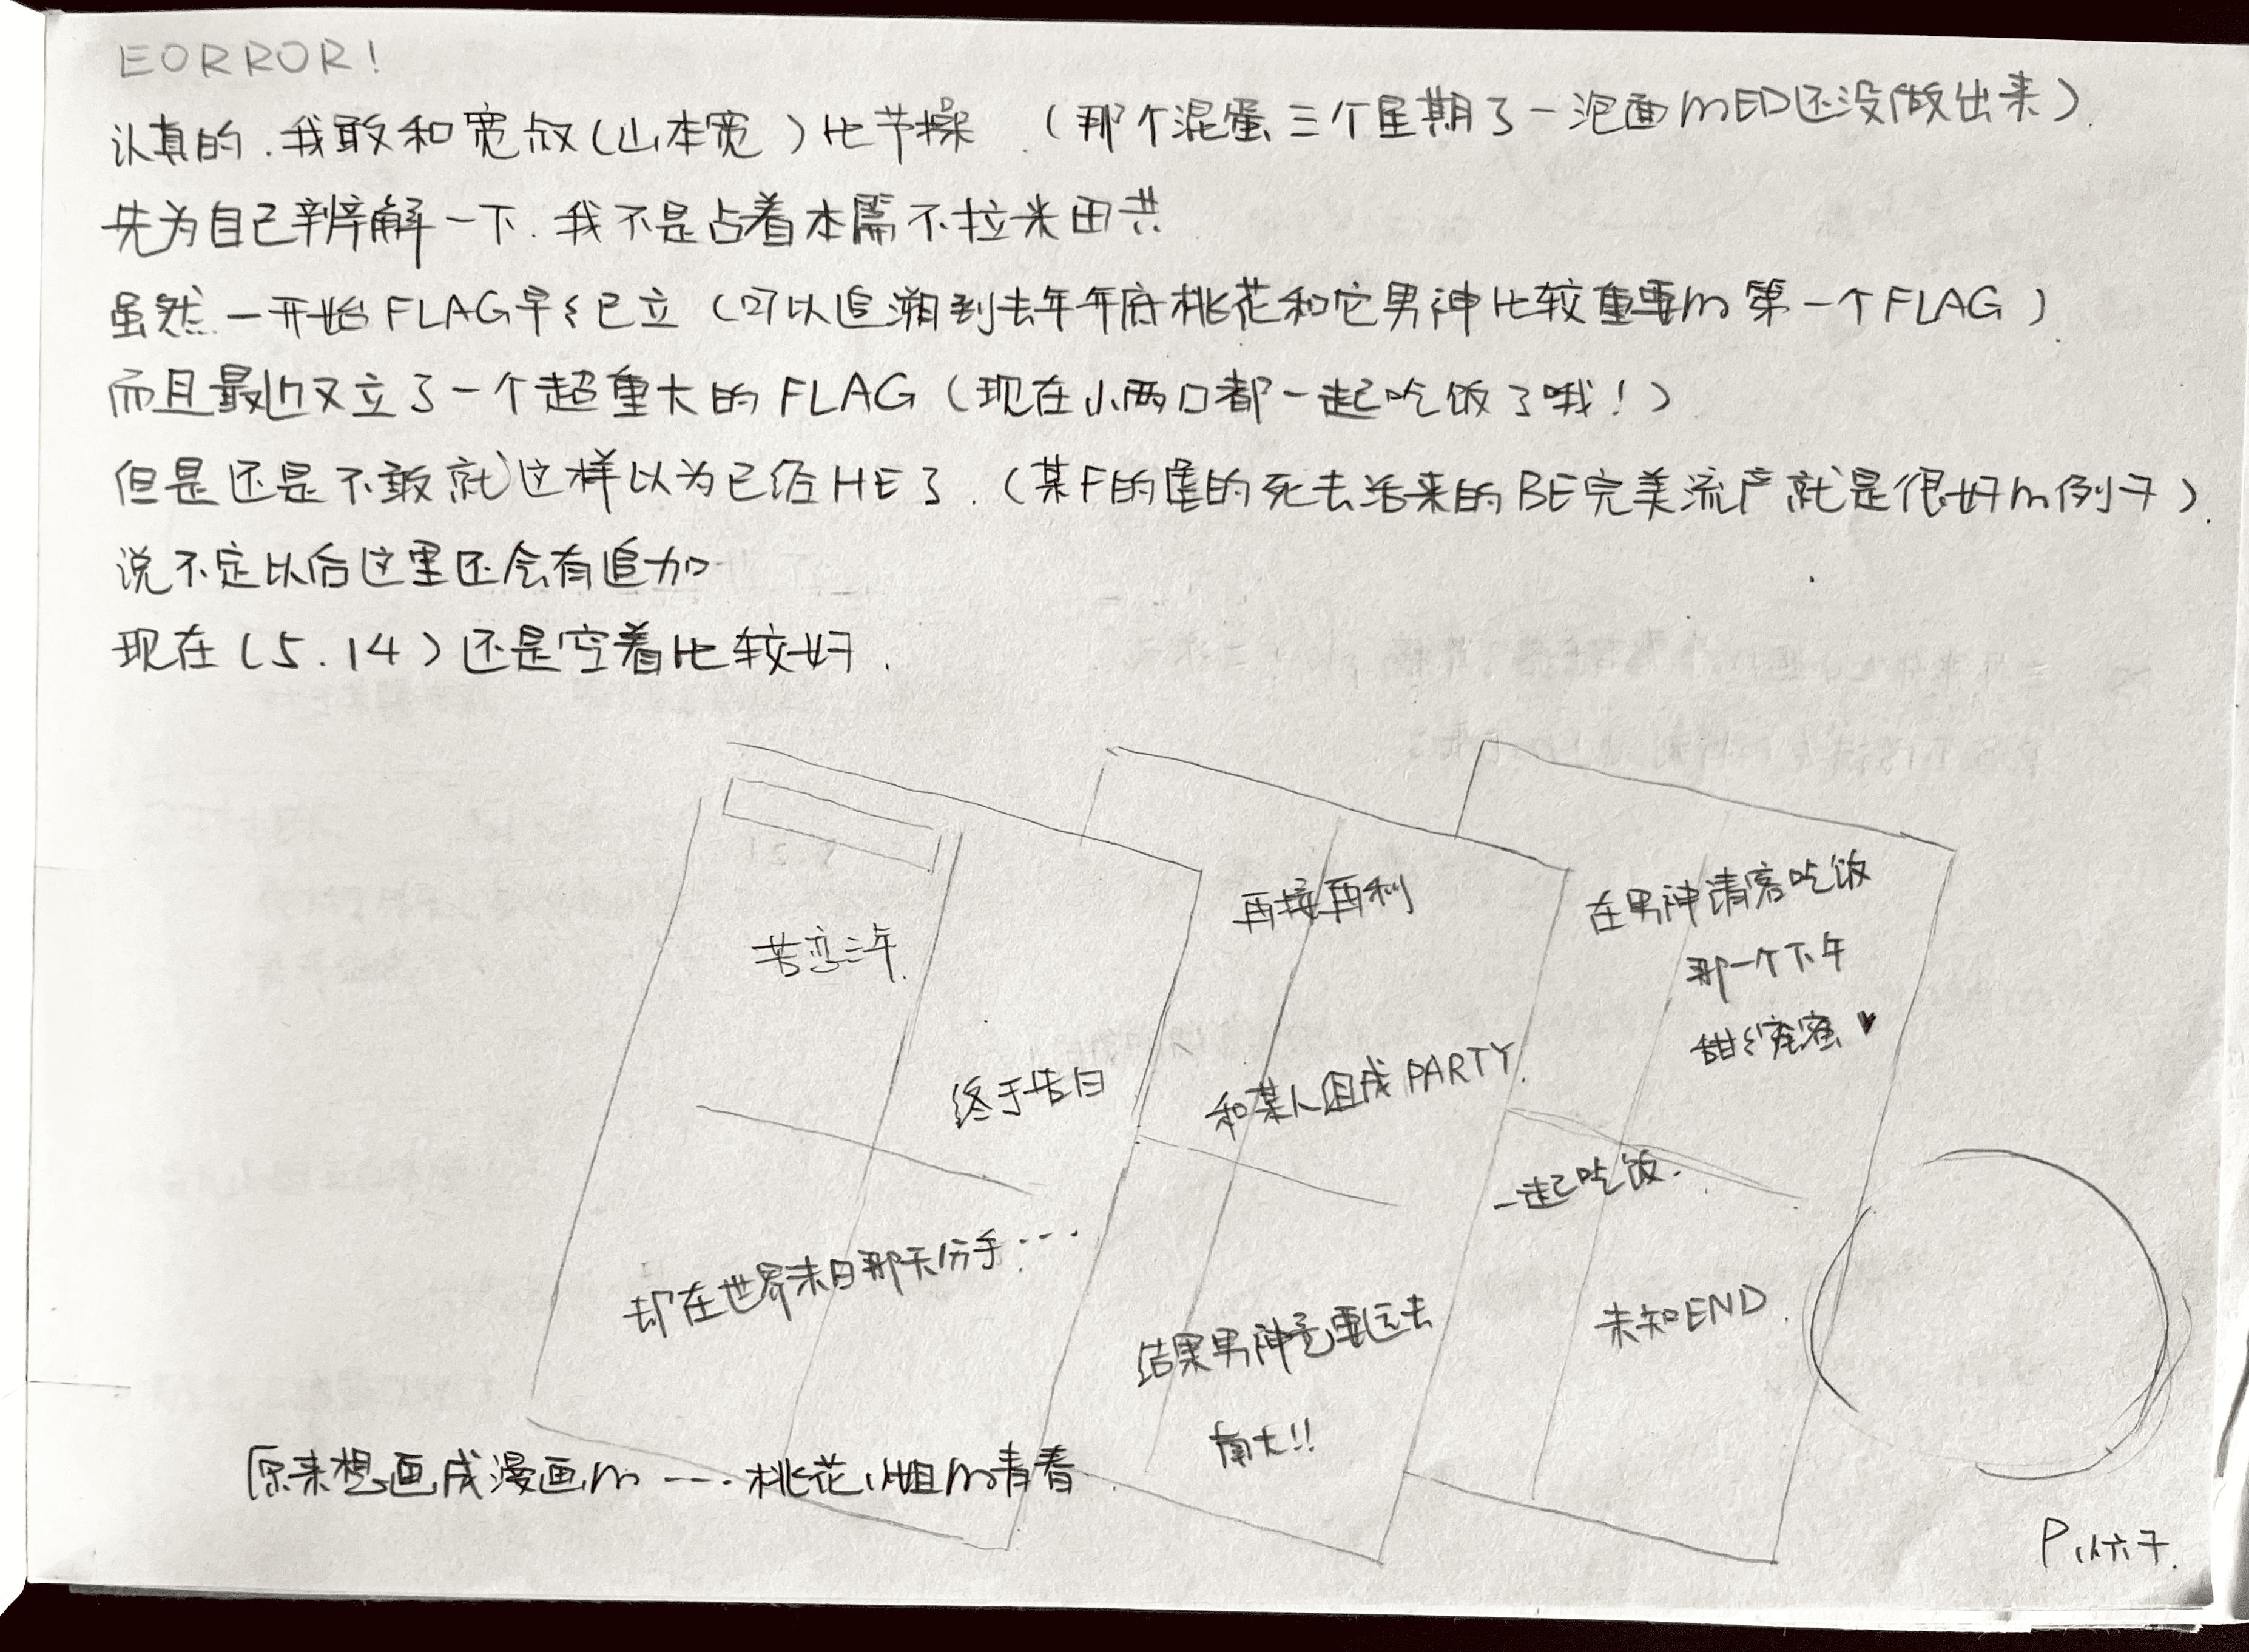 EORROR!
认真的.我敢和宽叔(山本宽)比节操.(那个混蛋三个星期了一泡面mED还没做出来).
先为自己辨解一下.我不是占着本 不拉米田共
虽然一开始FLAG早々已立(可以追溯到去年年底桃花和它男神比较重要m第一个FLAG)
而且最近又立了一个超重大的FLAG(现在小两口都一起吃饭了哦!)
但是还是不敢就这样以为已经HE了.(某F的 的死去活来的BE完美流产就是很好m例子).
说不定以后这里还会有追加
现在(5.14)还是空着比较好.
苦恋三年.
终于告白
却在世界末日那天分手……
再接再利
和某人组成PARTY.
结果男神竟要远去
南大!!
在男神请客吃饭
那一个下午
甜々蜜蜜♥
一起吃饭.
未知END.
原来想画成漫画m……桃花小姐m青春.
P.小 子.